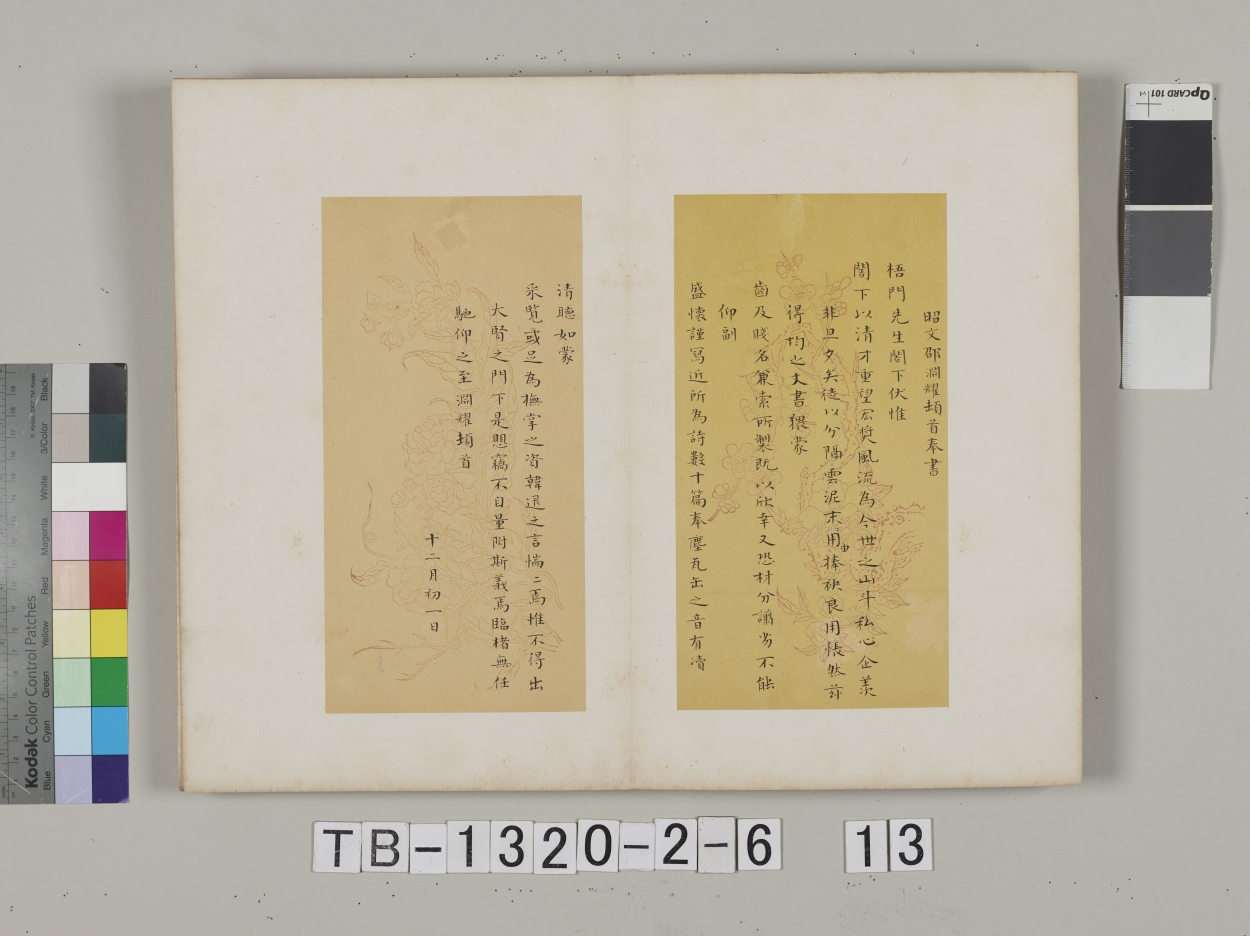 昭文邵淵耀頓首奉書
梧門先生閣下伏惟
閣下以清才重望宏奬風流為今世之山斗私心企羡
非旦夕矣徒以分隔雲泥末由捧袂良用悵然玆
得均之大書猥蒙
齒及賤名兼索所製既以欣幸又恐材分譾劣不能
仰副
盛懷謹寫近所為詩數十篇奉塵瓦缶之音有瀆
清聽如蒙
采覽或足為撫掌之資韓退之言惴二焉惟不得出
大賢之門下是思竊不自量附斯義焉臨楮無任
馳仰之至淵耀頓首
十二月初一日
TB-1320-2-6 13
QPCARD 101 v1
Kodak Color Control Patches
© Kodak, 2007, TM: Kodak
Blue Cyan Green Yellow Red Magenta White 3/Color Black